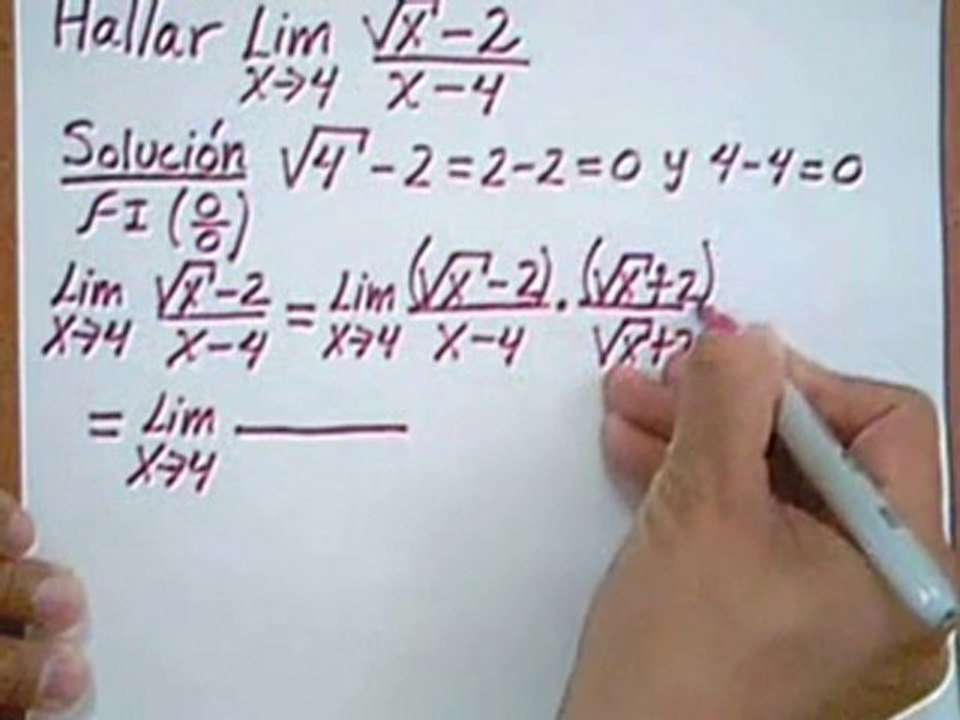 Hallar Lim x→4 (√x - 2)/(x - 4)
Solución √4 - 2 = 2 - 2 = 0 y 4 - 4 = 0
FI (0/0)
Lim x→4 (√x - 2)/(x - 4) = Lim x→4 (√x - 2)/(x - 4) · (√x + 2)/(√x + 2)
= Lim x→4